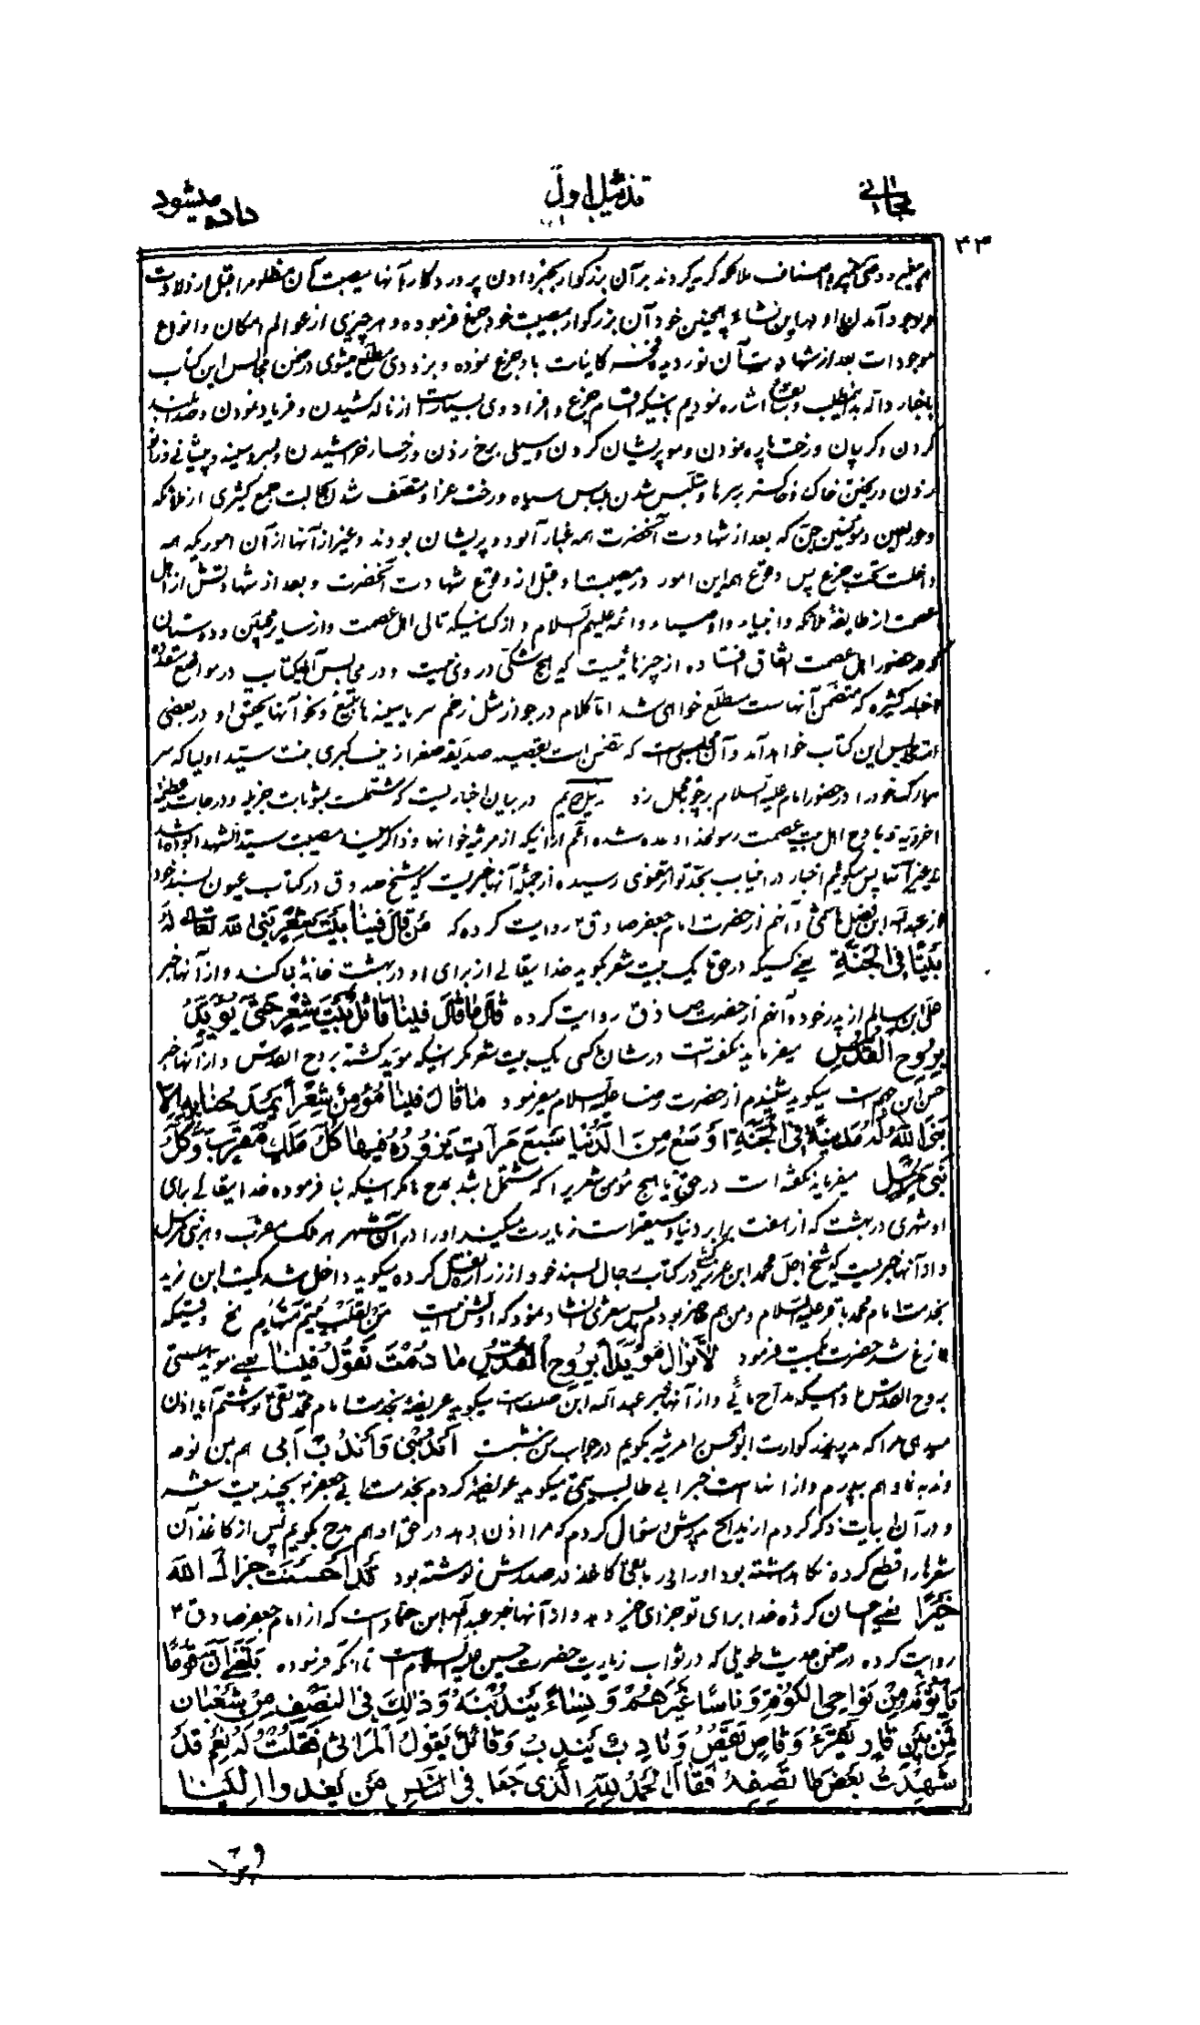 داده میشود
تذییل اول
۳۳
هر پیغمبر و وصی پیغمبر و اصناف ملائکه گریه کردند بر آن بزرگوار بخبر دادن پروردگار آنها را بمصیبت آن مظلوم قبل از ولادت
و بوجود آمدن او در این نشاء و همچنین خود آن بزرگوار بمصیبت خود جزع فرموده و هر چیزی از عوالم امکان و انواع
موجودات بعد از شهادت آن نور دیده کاینات باو جزع نموده و بزودی مطلع میشوی در ضمن مجالس این کتاب
باخبار داله بر مطلب و سابقا اشاره نمودیم باینکه اقسام جزع و افراد وی بسیار است از ناله کشیدن و فریاد نمودن و صدا بلند
کردن و گریبان و رخت پاره نمودن و مو پریشان کردن و سیلی برخ زدن و رخسار خراشیدن و بسر و سینه و پیشانی و زانو
زدن و ریختن خاک و خاکستر بسرها و متلبس شدن بلباس سیاه و رخت عزا و متصف شدن بحالت جمع کثیری از ملائکه
و حورالعین و مؤمنین جن که بعد از شهادت آنحضرت همه غبار آلود و پریشان بودند و غیر از آنها از آن امور که همه
داخلست تحت جزع پس وقوع همه این امور در مصیبت او قبل از وقوع شهادت آنحضرت و بعد از شهادتش از اهل
عصمت از طایفه ملائکه و انبیاء و اوصیاء و ائمه علیهم السلام و از کسانیکه تالی اهل عصمت و از سایر محبین و دوستان
که در حضور اهل عصمت اتفاق افتاده از چیزهائیست که هیچ شکی در وی نیست و در مجالس این کتاب در مواضع متعدده
اخبار کثیره که متضمن آنهاست مطلع خواهی شد اما کلام در جواز مثل زخم سر یا سینه با تیغ و نحو آنها بحق او در بعضی
از مجالس این کتاب خواهد آمد و آن مجلسی است که متضمن است بقصه صدیقه صغرا زینب کبری بنت سید اولیا که سر
مبارک خود را در حضور امام علیه السلام بر چوب محمل زد در بیان اخباریست که مشتملست بمثوبات جزیله و درجات عظیمه
اخرویه که بمادح اهل بیت عصمت رسولخدا وعده شده اعم از اینکه از مرثیه خوانها و ذاکرین مصیبت سید الشهدا بوده باشد
یا غیر آنها پس میگوئیم اخبار در این باب بحد تواتر معنوی رسیده از جمله آنها خبریست که شیخ صدوق در کتاب عیون بسند خود
از عبدالله ابن فضل هاشمی و آنهم از حضرت امام جعفر صادق ع روایت کرده که مَن قالَ فینا بَیتَ شِعرٍ بَنَی اللهُ تَعالی لَهُ
بَیتاً فِی الجَنَّةِ یعنی کسیکه در حق ما یک بیت شعر بگوید خدایتعالی از برای او در بهشت خانه بنا کند و از آنها خبر
علی ابن سالم از پدر خود و آنهم از حضرت صادق روایت کرده قالَ ما قالَ فینا قائِلٌ بَیتَ شِعرٍ حَتّی یُؤَیَّدَ
بِرُوحِ القُدُسِ میفرماید نگفته است در شان ما کسی یک بیت شعر مگر اینکه مؤید گشته بروح القدس و از آنها خبر
حسن ابن جهم است میگوید شنیدم از حضرت رضا علیه السلام میفرمود ما قالَ فینا مُؤمِنٌ شِعراً یَمدَحُنا بِهِ اِلّا
بَنَی اللهُ لَهُ مَدینَةً فِی الجَنَّةِ اَوسَعَ مِنَ الدُّنیا سَبعَ مَرّاتٍ یَزُورُهُ فیها کُلُّ مَلَکٍ مُقَرَّبٍ وَکُلُّ
نَبِیٍّ مُرسَلٍ میفرماید نگفته است در حق ما هیچ مؤمن شعریرا که مشتمل باشد بمدح ما مگر اینکه بنا فرموده خدایتعالی برای
او شهری در بهشت که از هفت برابر دنیا وسیعتر است زیارت میکنند او را در آن شهر هر ملک مقرب و هر نبی مرسل
و از آنها خبریست که شیخ اجل محمد ابن عمر کشی در کتاب رجال بسند خود از زراره نقل کرده میگوید داخل شد کمیت ابن زید
بخدمت امام محمد باقر علیه السلام و من هم حاضر بودم پس شعری انشاد نمود که اولش اینست مَن لِقَلبٍ مُتَیَّمٍ مُستَهامِ الخ وقتیکه
فارغ شد حضرت بکمیت فرمود لاتَزالُ مُؤَیَّداً بِرُوحِ القُدُسِ ما دُمتَ تَقُولُ فینا یعنی مؤید هستی
بروح القدس مادامیکه مداح مائی و از آنها خبر عبدالله ابن صلت است میگوید عریضه بخدمت امام محمد تقی نوشتم آیا اذن
میدهی مرا که بر پدر بزرگوارت ابوالحسن مرثیه بگویم در جواب من نوشت اُندُبنی وَاندُب اَبی هم بمن نوحه
و ندبه نما و هم بپدرم و از آنهاست خبر ابی طالب قمی میگوید عریضه کردم بخدمت ابی جعفر ع بچند بیت شعر
و در آن ابیات ذکر کردم از مدایح پدرش و سؤال کردم که مرا اذن بدهد در حق او هم مدح بگویم پس از کاغذ آن
شعرها را قطع کرده نگاهداشته بود و در باقی کاغذ در صدرش نوشته بود قَد اَحسَنتَ جَزاکَ اللهُ
خَیراً یعنی احسان کرده خدا برای تو جزای خیر دهد و از آنها خبر عبدالله ابن حماد است که از امام جعفر صادق ع
روایت کرده در ضمن حدیث طویلی که در ثواب زیارت حضرت حسین علیه السلام است تا آنکه فرموده بَلَغَنی اَنَّ قَوماً
یَأتُونَهُ مِن نَواحِی الکُوفَةِ وَناساً غَیرَهُم وَنِساءً یَندُبنَهُ وَذلِکَ فِی النِّصفِ مِن شَعبانَ
فَمِن بَینِ قارِءٍ یَقرَءُ وَقاصٍّ یَقُصُّ وَنادِبٍ یَندُبُ وَقائِلٍ یَقُولُ المَراثی فَقُلتُ لَهُ نَعَم قَد
شَهِدتُ بَعضَ ما تَصِفُ فَقالَ الحَمدُ للهِ الَّذی جَعَلَ فِی النّاسِ مَن یَفِدُ اِلَینا